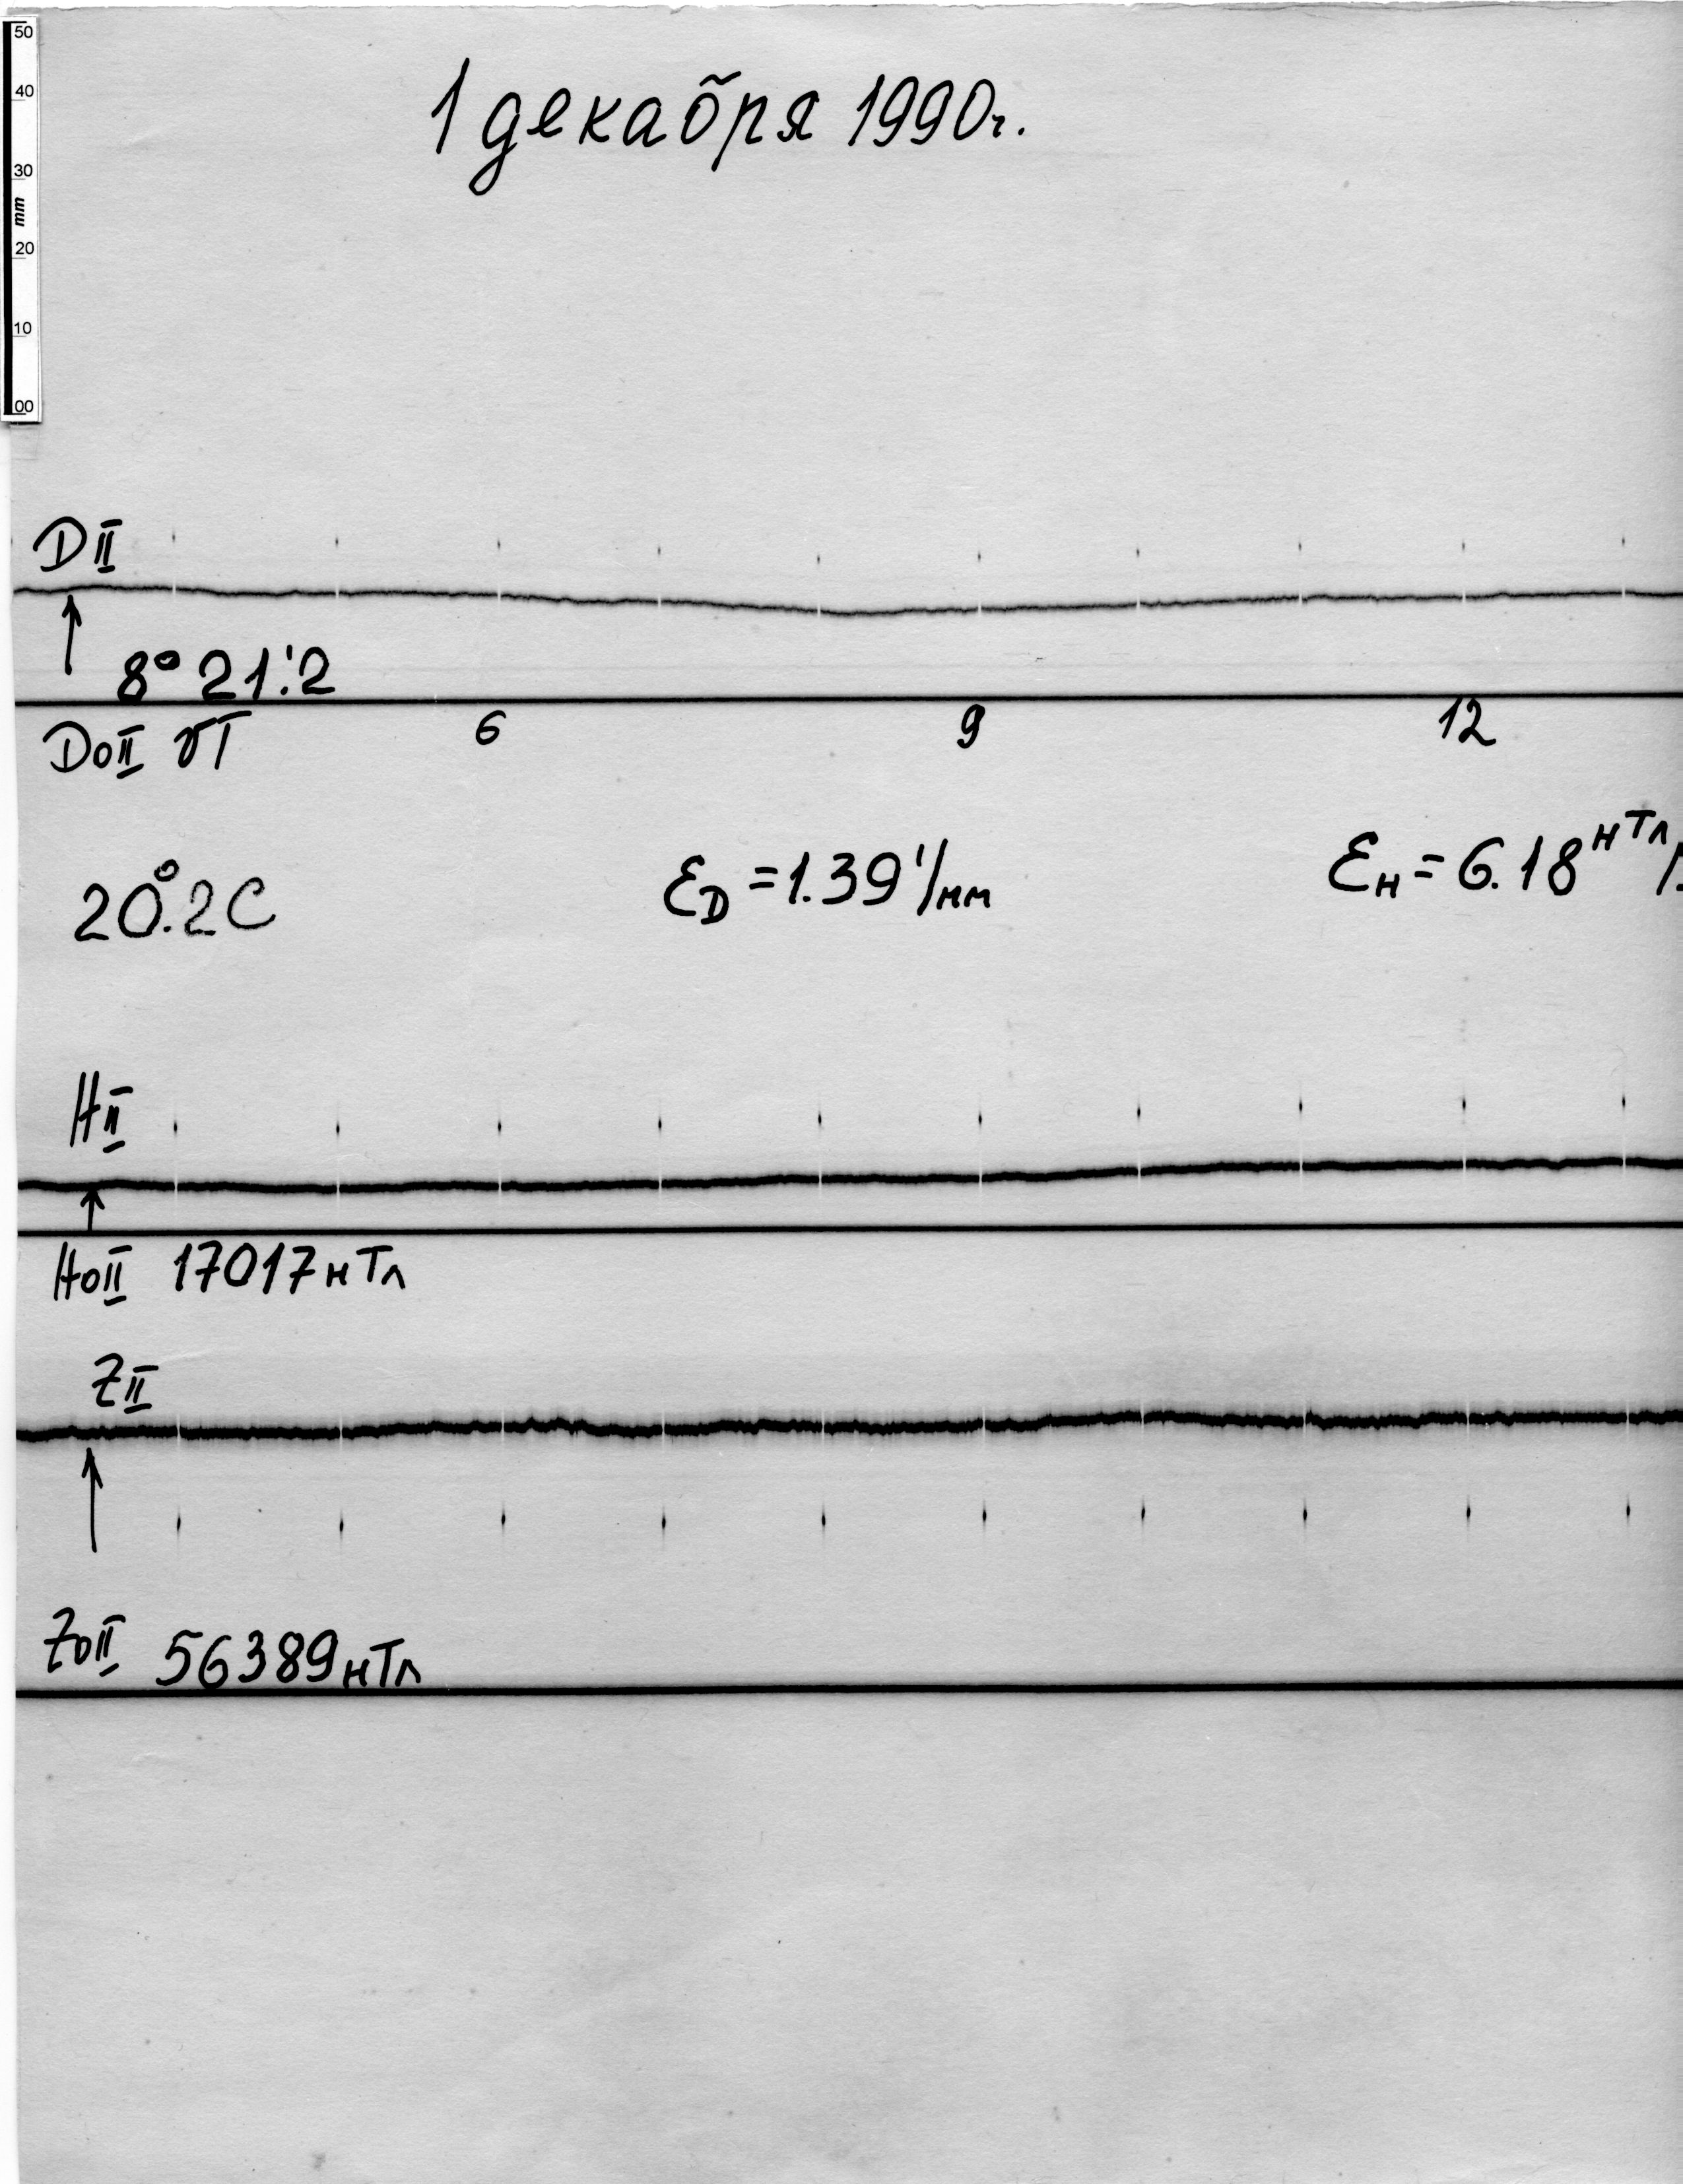 50
40
30
mm
20
10
00
1 декабря 1990г.
DII
8° 21'.2
DoII UT 6 9 12
20°.2C ƐD = 1.39'/мм ƐH = 6.18 нТл/
HII
HoII 17017 нТл
ZII
ZoII 56389 нТл